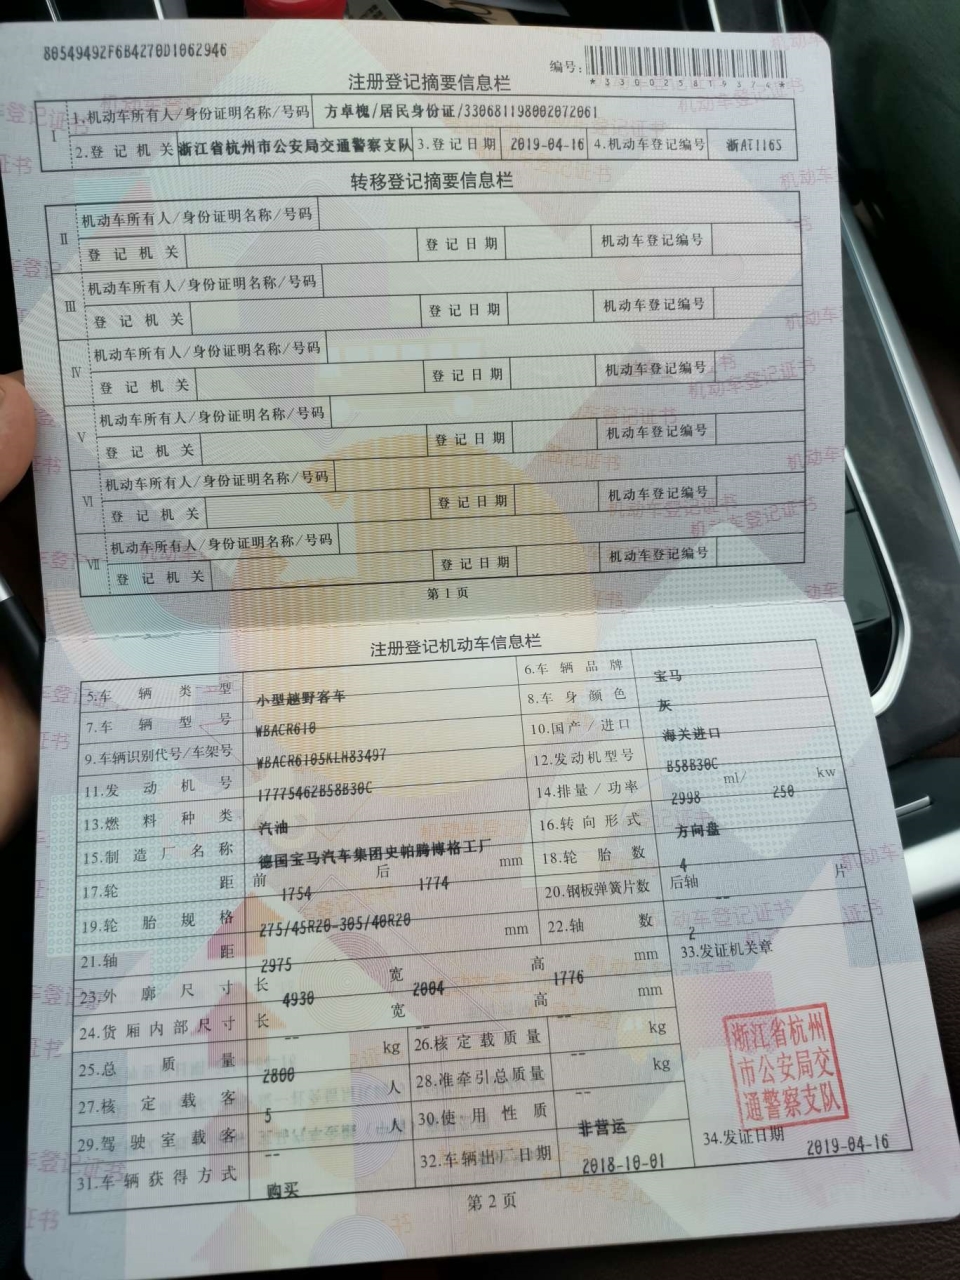 80549492F6B4270D1062946
编号:
*330025819374*
注册登记摘要信息栏
I
1.机动车所有人/身份证明名称/号码 方卓槐/居民身份证/330681198002072061
2.登记机关 浙江省杭州市公安局交通警察支队 3.登记日期 2019-04-16 4.机动车登记编号 浙AT116S
转移登记摘要信息栏
II 机动车所有人/身份证明名称/号码
登记机关 登记日期 机动车登记编号
III 机动车所有人/身份证明名称/号码
登记机关 登记日期 机动车登记编号
IV 机动车所有人/身份证明名称/号码
登记机关 登记日期 机动车登记编号
V 机动车所有人/身份证明名称/号码
登记机关 登记日期 机动车登记编号
VI 机动车所有人/身份证明名称/号码
登记机关 登记日期 机动车登记编号
VII 机动车所有人/身份证明名称/号码
登记机关 登记日期 机动车登记编号
第1页
注册登记机动车信息栏
5.车辆类型 小型越野客车 6.车辆品牌 宝马
7.车辆型号 WBACR610 8.车身颜色 灰
9.车辆识别代号/车架号 WBACR6105KLH83497 10.国产/进口 海关进口
11.发动机号 17775462B58B30C 12.发动机型号 B58B30C
13.燃料种类 汽油 14.排量/功率 2998 ml/ 250 kw
15.制造厂名称 德国宝马汽车集团史帕腾博格工厂 16.转向形式 方向盘
17.轮距 前 1754 后 1774 mm 18.轮胎数 4
19.轮胎规格 275/45R20-305/40R20 20.钢板弹簧片数 后轴 -- 片
21.轴距 2975 mm 22.轴数 2
23.外廓尺寸 长 4930 宽 2004 高 1776 mm 33.发证机关章
24.货厢内部尺寸 长 -- 宽 -- 高 -- mm
25.总质量 2800 kg 26.核定载质量 -- kg
27.核定载客 5 人 28.准牵引总质量 -- kg
29.驾驶室载客 -- 人 30.使用性质 非营运
31.车辆获得方式 购买 32.车辆出厂日期 2018-10-01 34.发证日期 2019-04-16
浙江省杭州
市公安局交
通警察支队
第2页